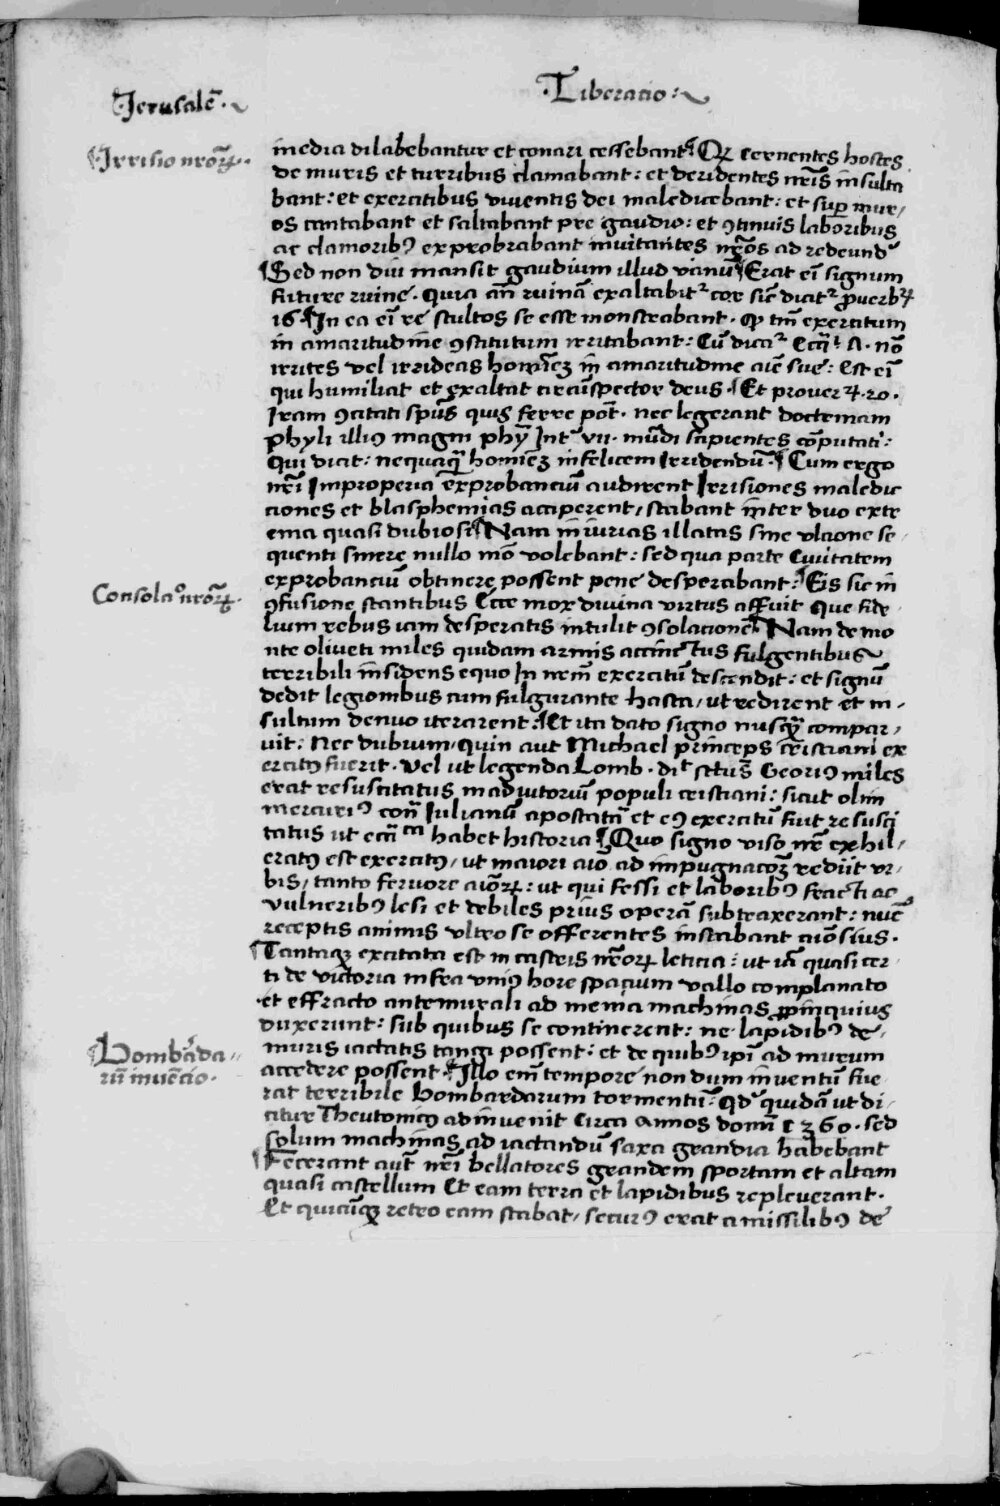 Jerusalē.
Liberatio:
Irrisio nrōꝝ.
inedia dilabebantur et conari cessebant. Qꝫ cernentes hostes
de muris et turribus clamabant: et deridentes nrīs insulta
bant: et exercitibus viventis dei maledicebant: et sup mur,
os cantabant et saltabant pre gaudio: et ꝯtinuis laboribus
ac clamoribꝰ exprobrabant invitantes nrōs ad redeundū
Sed non diu mansit gaudium illud vanū Erat eī signum
future ruine. Quia an̄ ruinā exaltabitᷣ cor sic̄ dicitᷣ proverbꝝ
16 In ea eī re stultos se esse monstrabant. qꝫ tm̄ exercitum
in amaritudine ꝯstitutum irritabant: Cū dicatᷣ Eccī A. nō
irrites vel irrideas homīeꝫ in amaritudine aīe sue: Est eī
qui humiliat et exaltat circūspector deus. Et prover ꝝ. 20.
Iram ꝯcitati spūs quis ferre pōt. nec legerant doctrinam
phyli illiꝰ magni phȳ Intᷣ vii. mūdi sapientes cōputati:
Qui dicit: nequaqꝫ homīeꝫ infelicem Irridendū. Cum ergo
nrī Improperia exprobanciū audirent Irrisiones maledic
ciones et blasphemias acciperent, stabant inter duo extr
ema quasi dubiosi Nam iniurias illatas sine ulcione se,
quenti sinere nullo mō volebant: sed qua parte Civitatem
exprobanciū obtinere possent pene desperabant: Eis sic in
Consolaᵒ nrōꝝ.
ꝯfusione stantibus Ecce mox divina virtus affuit Que fide
lium rebus iam desperatis intulit ꝯsolacionē Nam de mo
nte oliveti miles quidam armis accinctus fulgentibus
terribili insidens equo In nrm̄ exercitū descendit: et signū
dedit legionibus cum fulgurante hasta, ut redirent et in,
sultum denuo iterarent: Et ita dato signo nusqꝫ compar,
uit: Nec dubium, quin aut Michael princeps cristiani ex
ercitꝰ fuerit. Vel ut legenda Lomb. dit sctūs Georiꝰ miles
erat resuscitatus in adiutoriū populi cristiani: sicut olim
mercuriꝰ conᷓ Iulianū apostatā et eꝰ exercitū fuit resusci
tatus ut eccᷓᶜᵃ habet historia. Quo signo viso nrē exhil,
eratꝰ est exercitꝰ, ut maiori aīo ad impugnacōꝫ rediit ur,
bis, tanto fervore aīōꝝ: ut qui fessi et laboribꝰ fracti ac
vulneribꝰ lesi et debiles prius operā subtraxerant: nūc
receptis animis ultro se offerentes instabant aīōsius.
Tantaqꝫ excitata est in castris nrōꝝ leticia: ut iā quasi cer,
ti de victoria infra uniꝰ hore spacium vallo complanato
et effracto antemurali ad menia machinas ꝓpinquius
duxerunt: sub quibus se continerent: ne lapidibꝰ de,
Bombarda,,
rū invēcio.
muris iactatis tangi possent: et de quibꝰ ipī ad murum
accedere possent. Illo enī tempore non dum inventū fue
rat terribile Bombardarum tormentū: Qd quidā ut di,
citur Theutonicꝰ adinvenit Circa Annos domī 1360. sed
solum machinas ad iactandū saxa grandia habebant
Fecerant aūt nrī bellatores grandem sportam et altam
quasi castellum Et eam terra et lapidibus repleverant.
Et quicūqꝫ retro eam stabat, securꝰ erat a missilibꝰ de